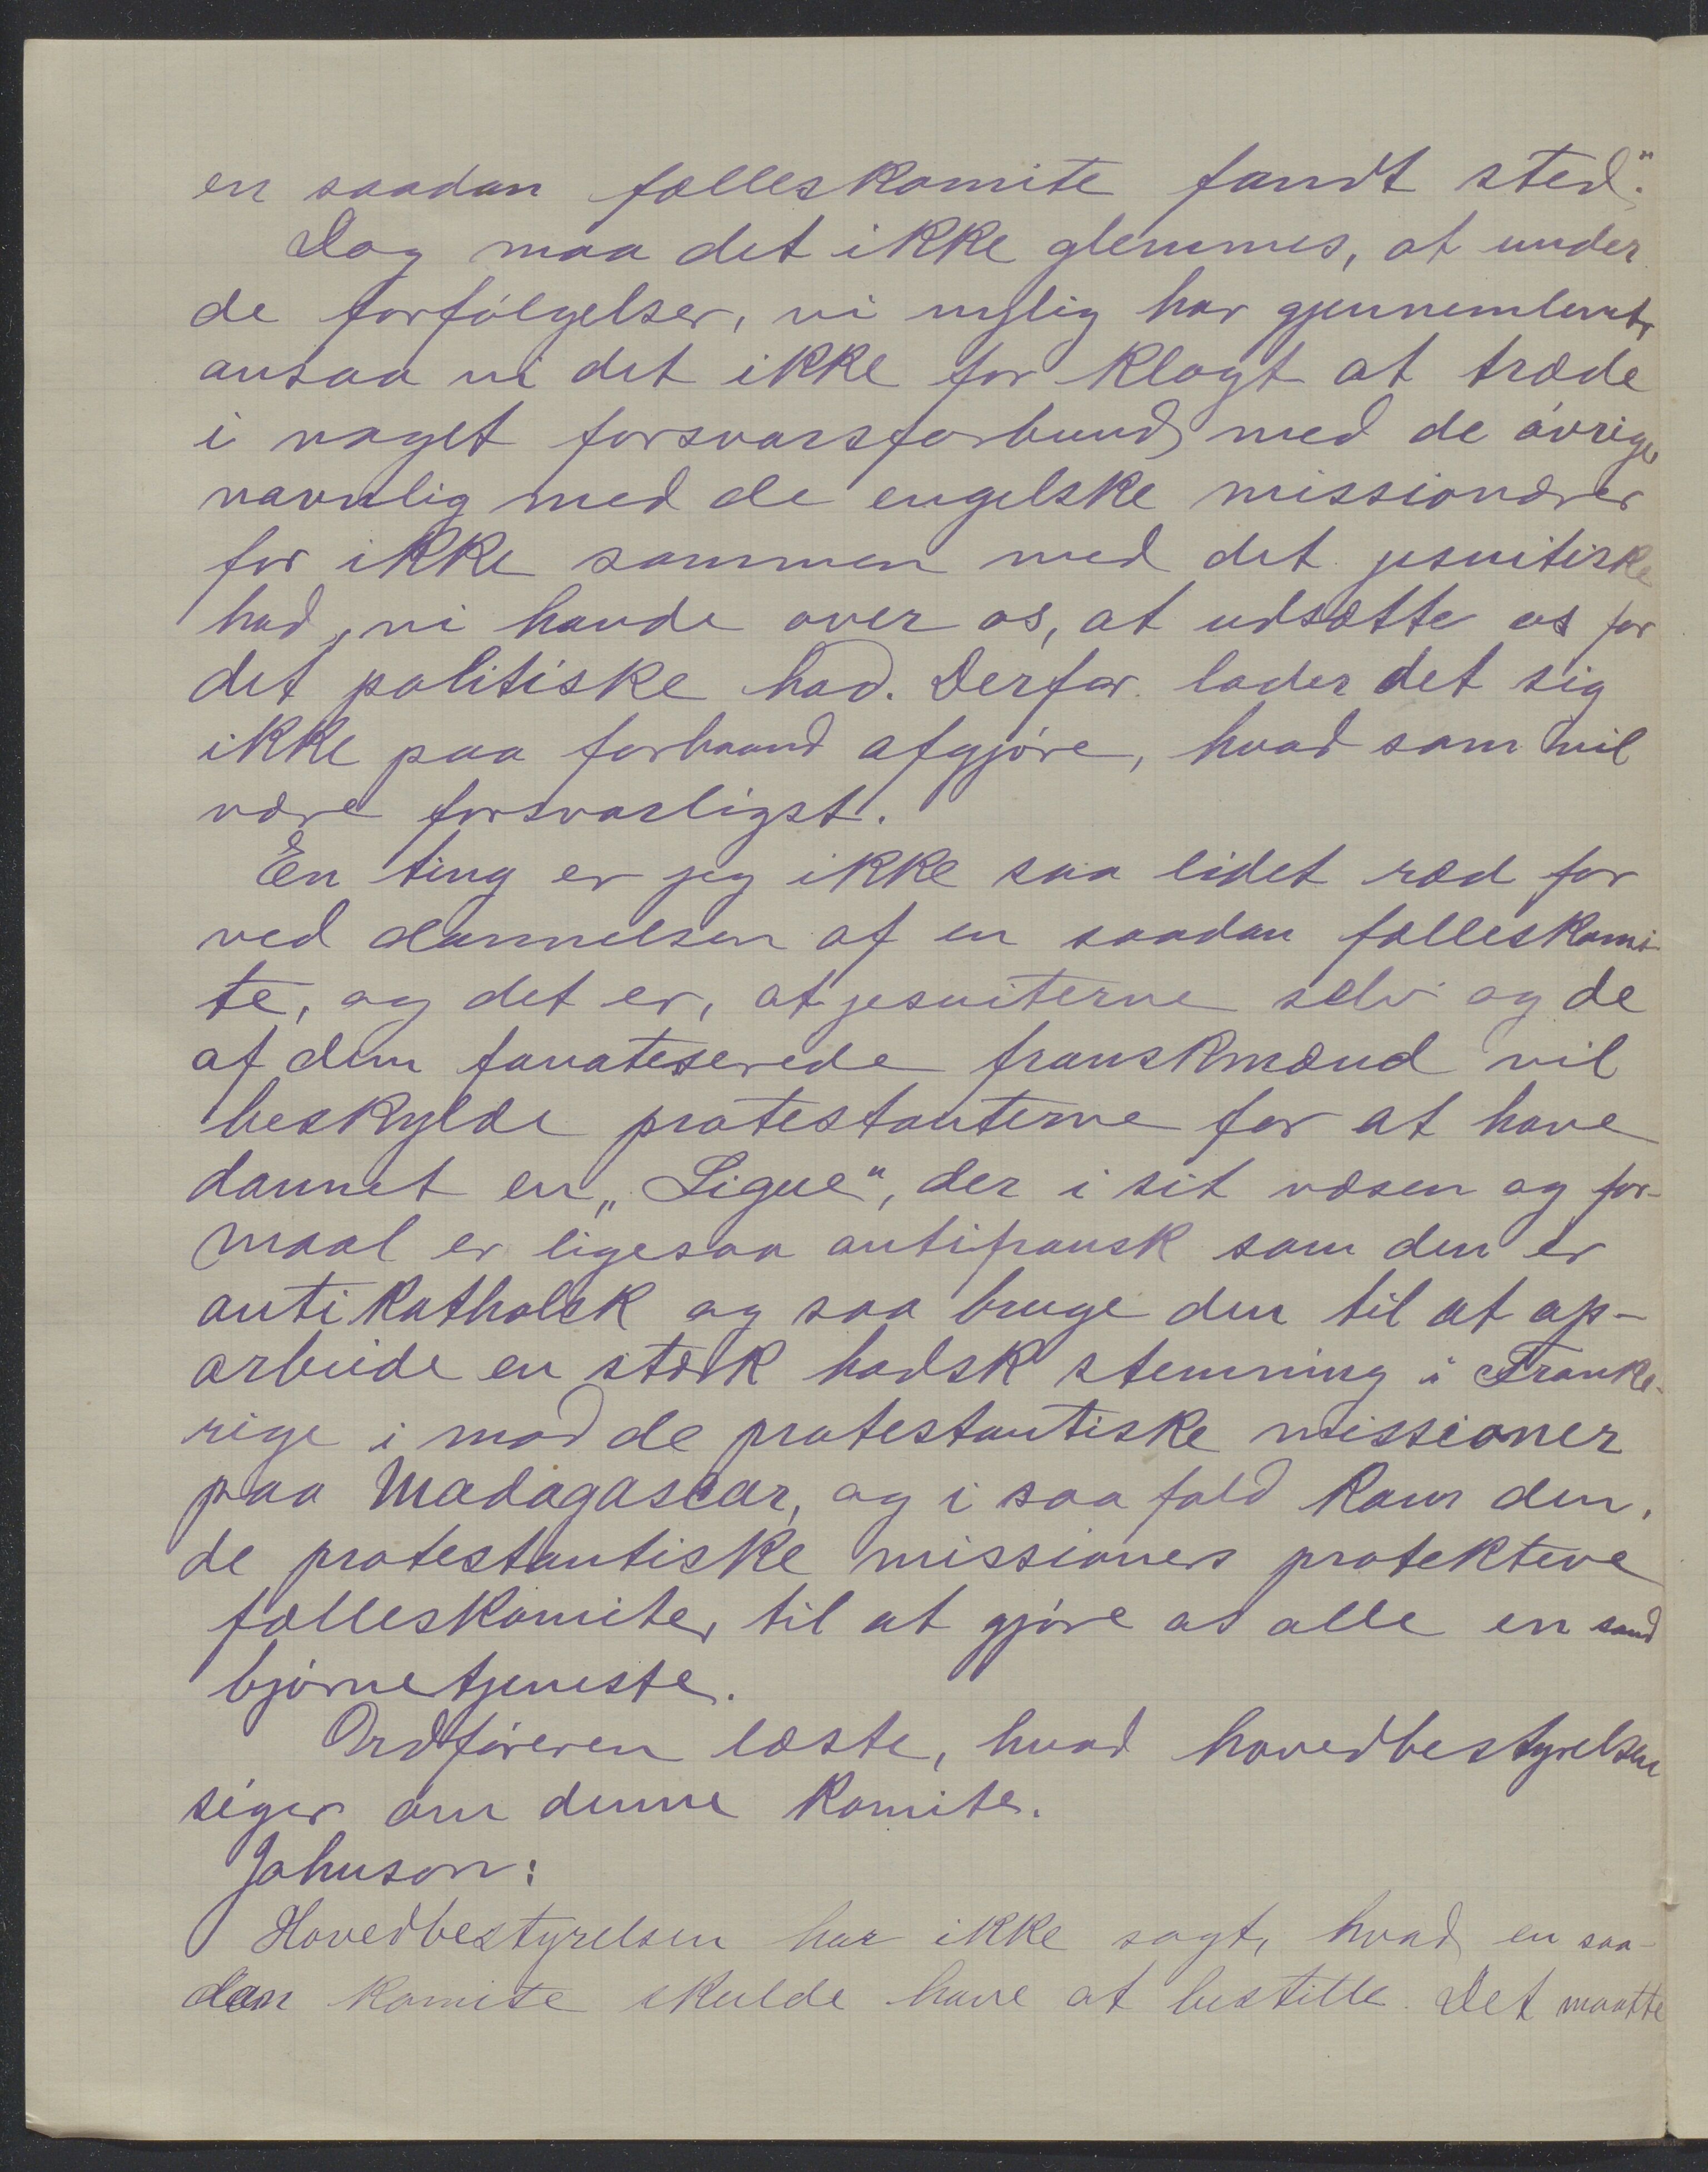 en saadan fælleskomite fandt sted."
Dog maa det ikke glemmes, at under
de forfölgelser, vi nylig har gjennemlevet,
ansaa vi det ikke for klogt at træde
i noget forsvarsforbund med de övrige,
navnlig med de engelske missionærer
for ikke sammen med det jesuitiske
had, vi havde over os, at udsætte os for
det politiske had. Derfor lader det sig
ikke paa forhaand afgjöre, hvad som vil
være forsvarligst.
En ting er jeg ikke saa lidet ræd for
ved dannelsen af en saadan fælleskomi-
te, og det er, at jesuiterne selv og de
af dem fanatiserede franskmænd vil
beskylde protestanterne for at have
dannet en „Ligue", der i sit væsen og for-
maal er ligesaa antifransk som den er
antikatholsk og saa bruge den til at op-
arbeide en stærk hadsk stemning i Franke-
rige i mod de protestantiske missioner
paa Madagascar, og i saa fald kom den,
de protestantiske missioners protektive
fælleskomite, til at gjöre os alle en sand
björnetjeneste.
Ordföreren læste, hvad hovedbestyrelsen
siger om denne komite.
Johnson:
Hovedbestyrelsen har ikke sagt, hvad en saa-
dan komite skulde have at bestille. Det maatte